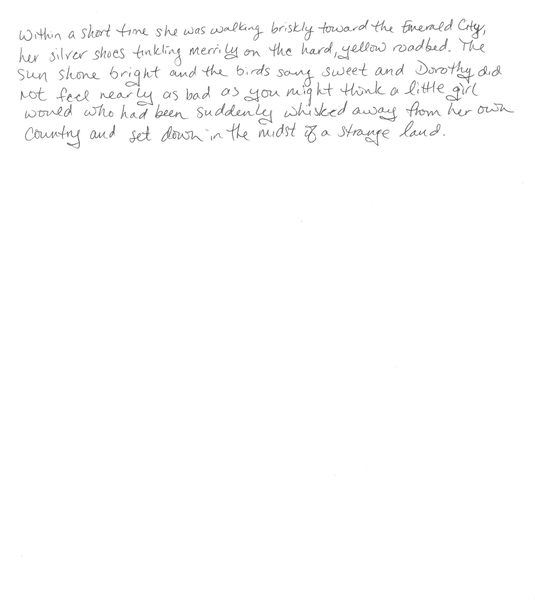 Within a short time she was walking briskly toward the Emerald City,
her silver shoes tinkling merrily on the hard, yellow roadbed. The
sun shone bright and the birds sang sweet and Dorothy did
not feel nearly as bad as you might think a little girl
would who had been suddenly whisked away from her own
country and set down in the midst of a strange land.